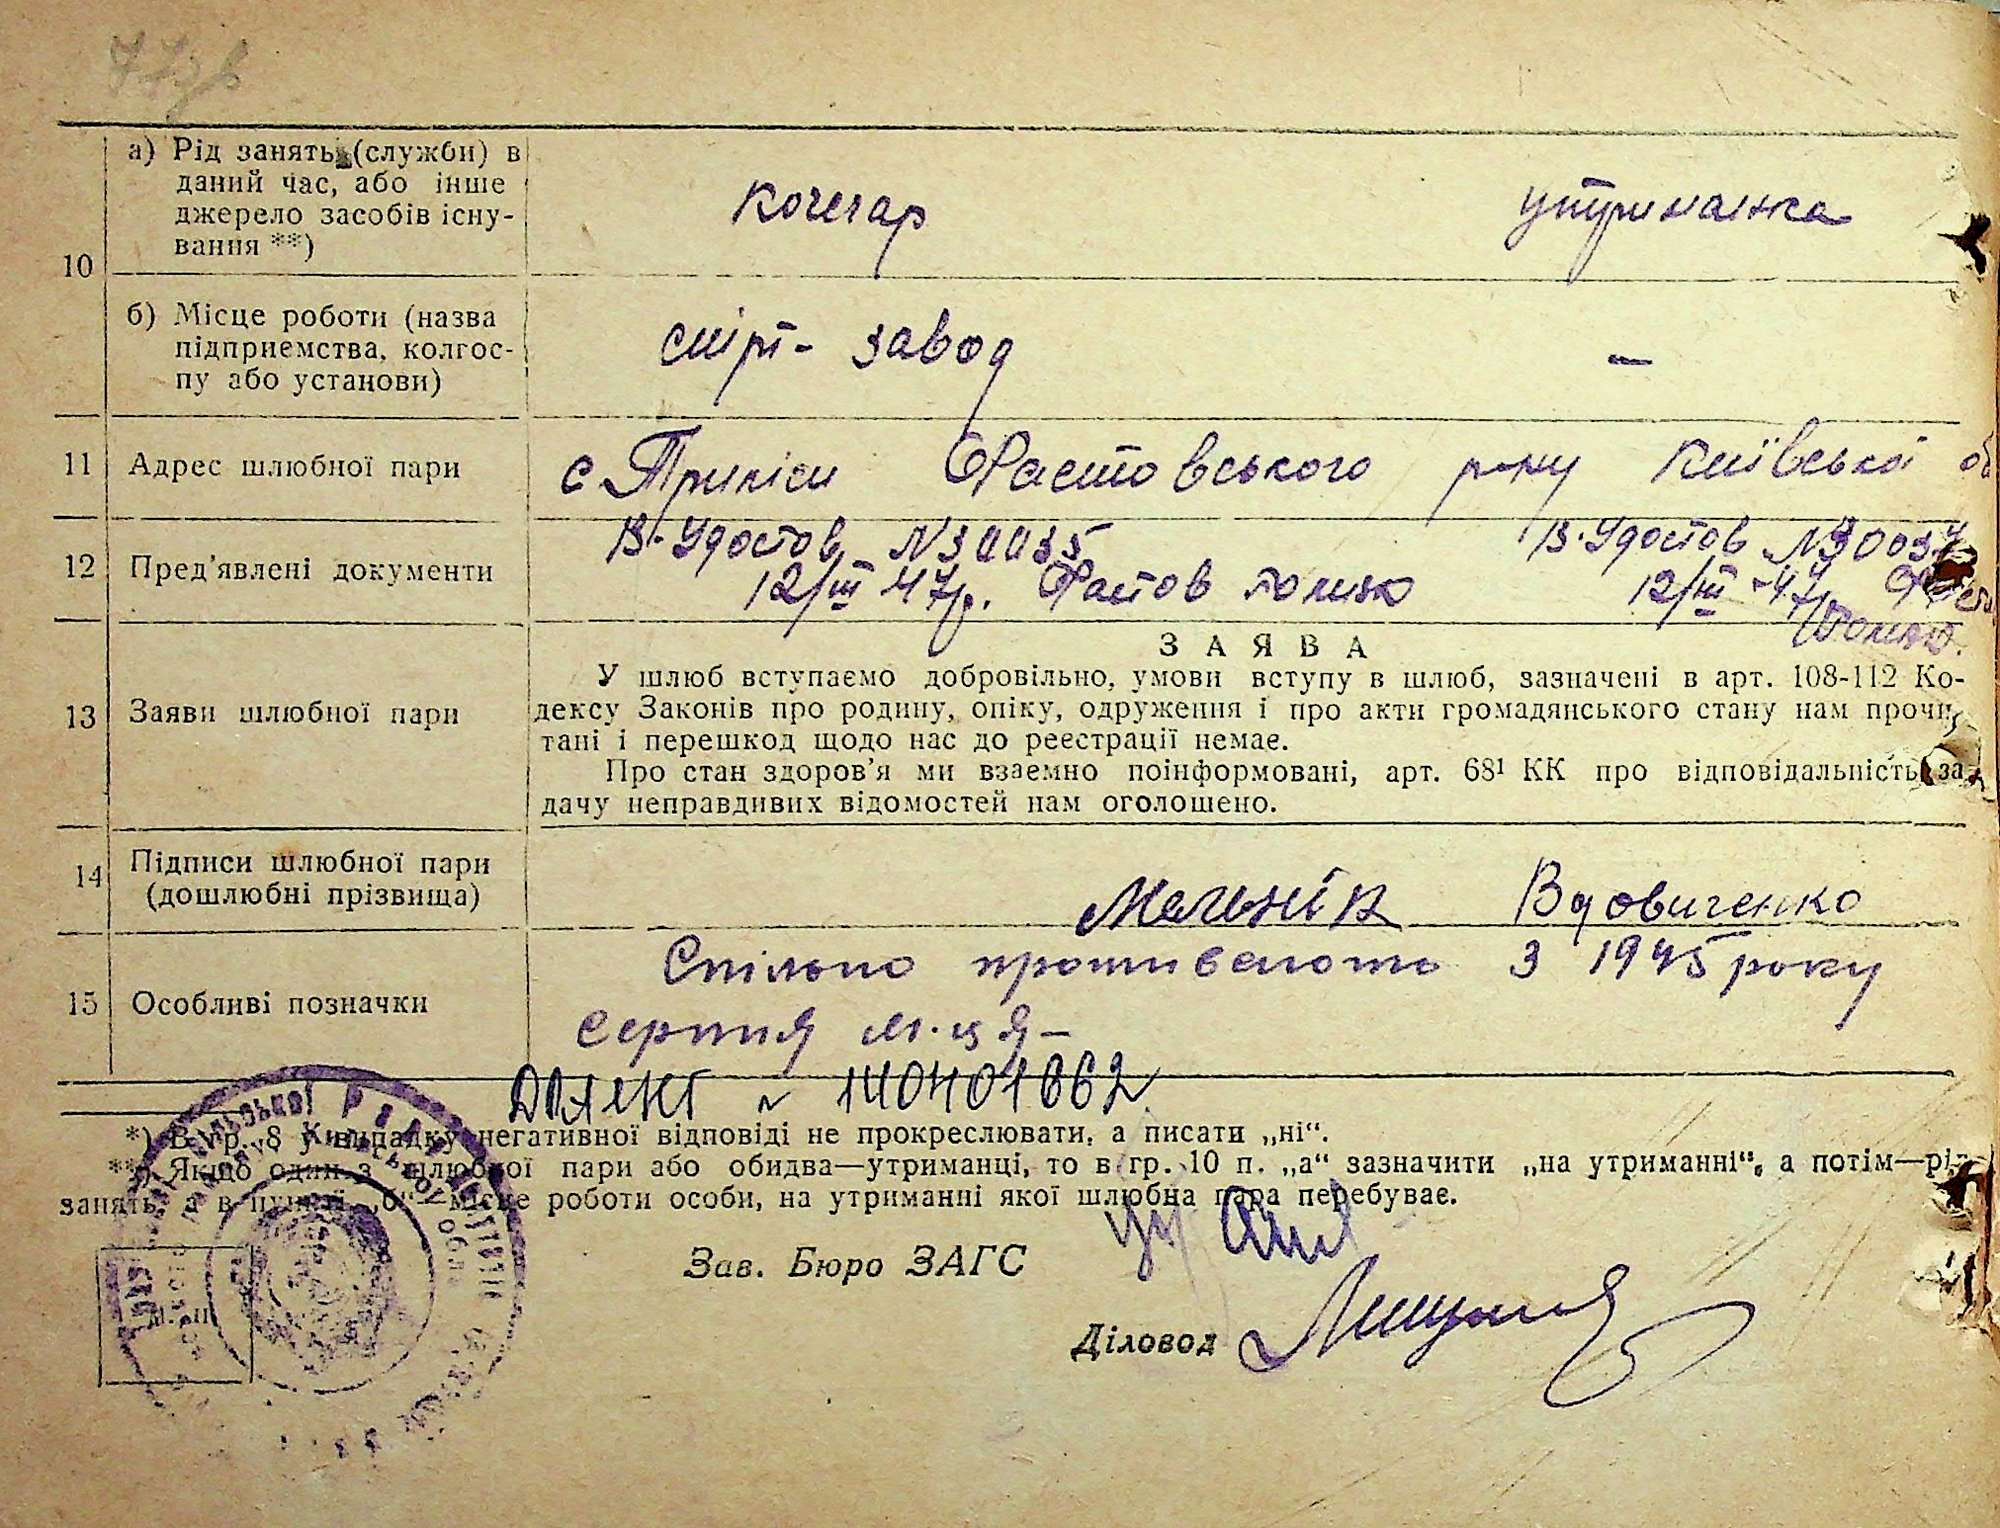 а) Рід занять (служби) в
даний час, або інше
джерело засобів існу-
вання **)
кочегар
утриманка
10
б) Місце роботи (назва
підприємства, колгос-
пу або установи)
спірт- завод
—
11 Адрес шлюбної пари
с. Триліси Фастовського р-ну Київської об
12 Пред'явлені документи
В. Удостов № 30035 В. Удостов № 30037
12/III 47р. Фастов 12/III-47
13 Заяви шлюбної пари
ЗАЯВА
У шлюб вступаємо добровільно, умови вступу в шлюб, зазначені в арт. 108-112 Ко-
дексу Законів про родину, опіку, одруження і про акти громадянського стану нам прочи-
тані і перешкод щодо нас до реєстрації немає.
Про стан здоров'я ми взаємно поінформовані, арт. 68¹ КК про відповідальність за
дачу неправдивих відомостей нам оголошено.
14 Підписи шлюбної пари
(дошлюбні прізвища)
Мельнік Вдовиченко
15 Особливі позначки
Спільно проживають з 1945 року
серпня м-ця-
*) В гр. 8 у випадку негативної відповіді не прокреслювати, а писати „ні“.
**) Якщо один з шлюбної пари або обидва—утриманці, то в гр. 10 п. „а“ зазначити „на утриманні“, а потім—рід
занять, а в пункті „б“—місце роботи особи, на утриманні якої шлюбна пара перебуває.
Зав. Бюро ЗАГС
Діловод
М. П.